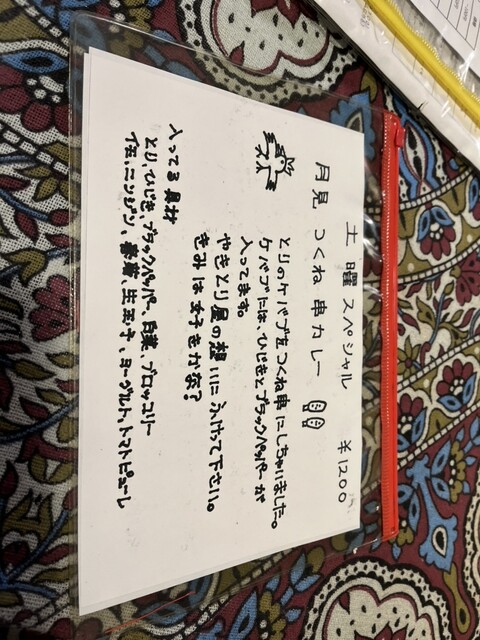 土曜スペシャル ¥1200
月見つくね串カレー
とりのケバブをつくね串にしちゃいました。
ケバブには、ひじきとブラックペッパーが
入ってます。
やきとり屋の想いにふけって下さい。
きみは好きかな?
入ってる具材
とり、ひじき、ブラックペッパー、白菜、ブロッコリー
生玉子、ヨーグルト、トマトピューレ